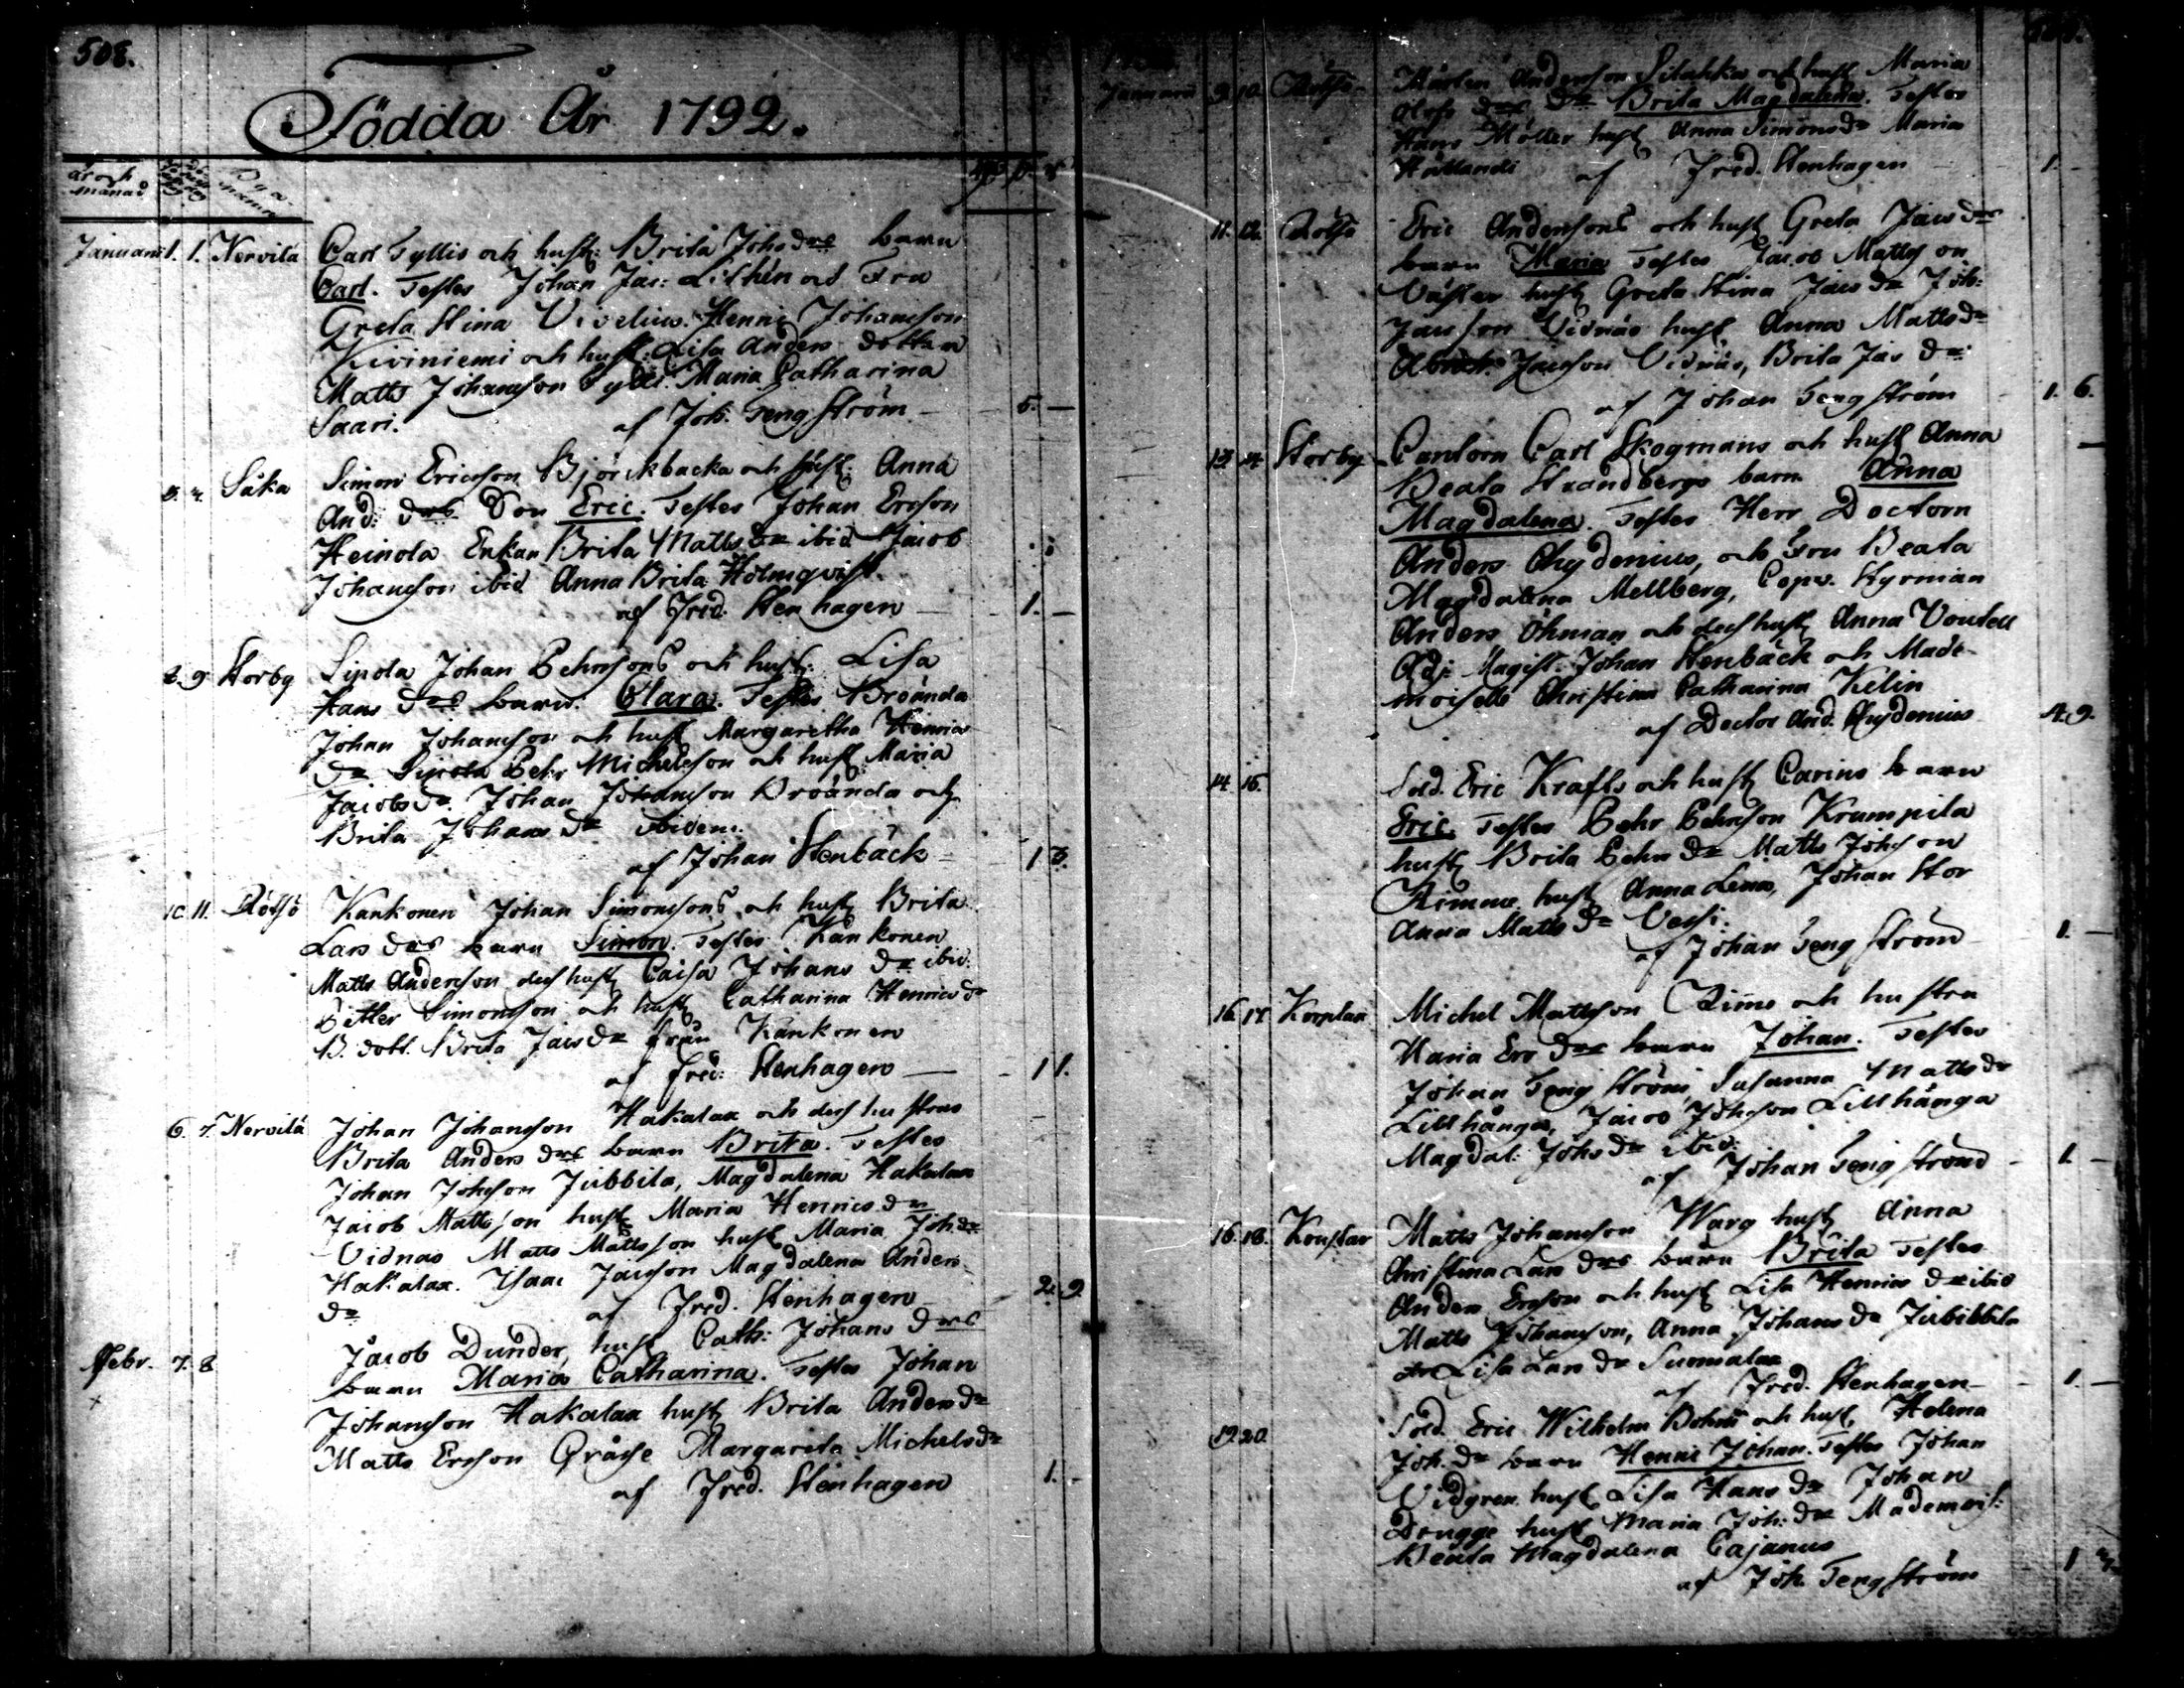 508.
Födda År 1792.
år och månad
Januarii 1. 1. Nervilä Carl Tyllis och hust: Brita Johsdrs barn
Carl. Testes Johan Jac: Lithén och Fru
Greta Stina Vivelius. Henric Johansson
Kiviniemi och hust: Lisa Anders dotter
Matts Johansson Tylli. Maria Catharina
Saari. af Joh. Tengström 5. —
3. 4. Såka Simon Ericsson Björckbacka och hust: Anna
And: drs Son Eric. Testes Johan Ericson
Heinola Enkan Brita Mattsdr ibid Jacob
Johansson ibid Anna Brita Holmqvist.
af Fred. Stenhagen — 1. —
8. 9. Storby Lipola Johan Pehrssons och hust: Lisa
Hans drs barn: Clara. Testes Broända
Johan Johansson och hust Margaretha Henrics
dr Lipola Pehr Michelsson och hust Maria
Jacobsdr. Johan Johansson Broända och
Brita Johans dr ibidem.
af Johan Stenbäck 1 3.
10. 11. Rötsö Kankonen Johan Simonssons och hust Brita
Lars drs barn Simon. Testes Kankonen
Matts Andersson dess hust Caisa Johans dr ibid.
Petter Simonsson och hust Catharina Henricsdr
B. dott. Brita Jacsdr från Kankonen
af Fred: Stenhagen — 1 1.
6. 7. Nervilä Johan Johansson Hakalax och dess hustrus
Brita Anders drs barn Brita. Testes
Johan Johsson Jubbila, Magdalena Hakalax
Jacob Mattsson hust Maria Henricsdr
Vidnäs Matts Mattsson hust Maria Johsdr
Hakalax. Isaac Jacsson Magdalena Anders
dr af Fred. Stenhagen 2. 9.
Febr. 7. 8. Jacob Dunder, hust Cath: Johans drs
barn Maria Catharina. Testes Johan
Johansson Hakalax hust Brita Andersdr
Matts Ersson Gråsje Margareta Michelsdr
af Fred. Stenhagen 1. -
Januarii 9. 10. Rötsö Mårten Andersson Silahka och hust Maria
Olofs drs dr Brita Magdalena. Testes
Hans Möller hust Anna Simonsdr Maria
af Fred. Stenhagen 1. -
11. 12. Rötsö Eric Anderssons och hust Greta Jacsdrs
barn Maria Testes Jacob Mattsson
hust Greta Stina Jacsdr Joh:
Jacsson Vidnäs hust Anna Mattsdr
Jacsson Vidnäs, Brita Jac dr
af Johan Tengström 1. 6.
13. 14. Storby Cantorn Carl Skogmans och hust Anna
Beata Strandbergs barn Anna
Magdalena. Testes Herr Doctorn
Anders Chydenius, och Fru Beata
Magdalena Mellberg, Copv. Styrman
Anders Öhman och dess hust Anna
Adj: Magist. Johan Stenbäck och Made-
moiselle Christina Catharina Kelin
af Doctor And. Chydenius 4. 9.
14. 15. Sold. Eric Krafts och hust Carins barn
Eric. Testes Pehr Pehrsson Krumpila
hust Brita Pehrs dr Matts Johsson
Rimmi hust Anna Lena, Johan Stor
Anna Matts dr
af Johan Tengström 1. —
16. 17. Korplax Michel Mattsson Rimo och hustru
Maria Ers drs barn Johan. Testes
Johan Tengström, Susanna Mattsdr
Lillhånga, Jacob Johsson Lillhånga
Magdal: Johsdr ibid.
af Johan Tengström 1. —
16. 18. Matts Johansson Warg hust Anna
Christina Lars drs barn Brita Testes
Anders Ersson och hust Lisa Henrics dr ibid
Matts Johansson, Anna Johans dr Jubbila
Lisa Lars dr Suomalax
af Fred. Stenhagen 1. —
19. 20. Sold. Eric Wilhelm Bohm och hust Helena
Joh. dr barn Henric Johan. Testes Johan
Vidgren hust Lisa Hans dr Johan
Drugge hust Maria Joh: dr Mademois:
Beata Magdalena Cajanus
af Joh. Tengström 1